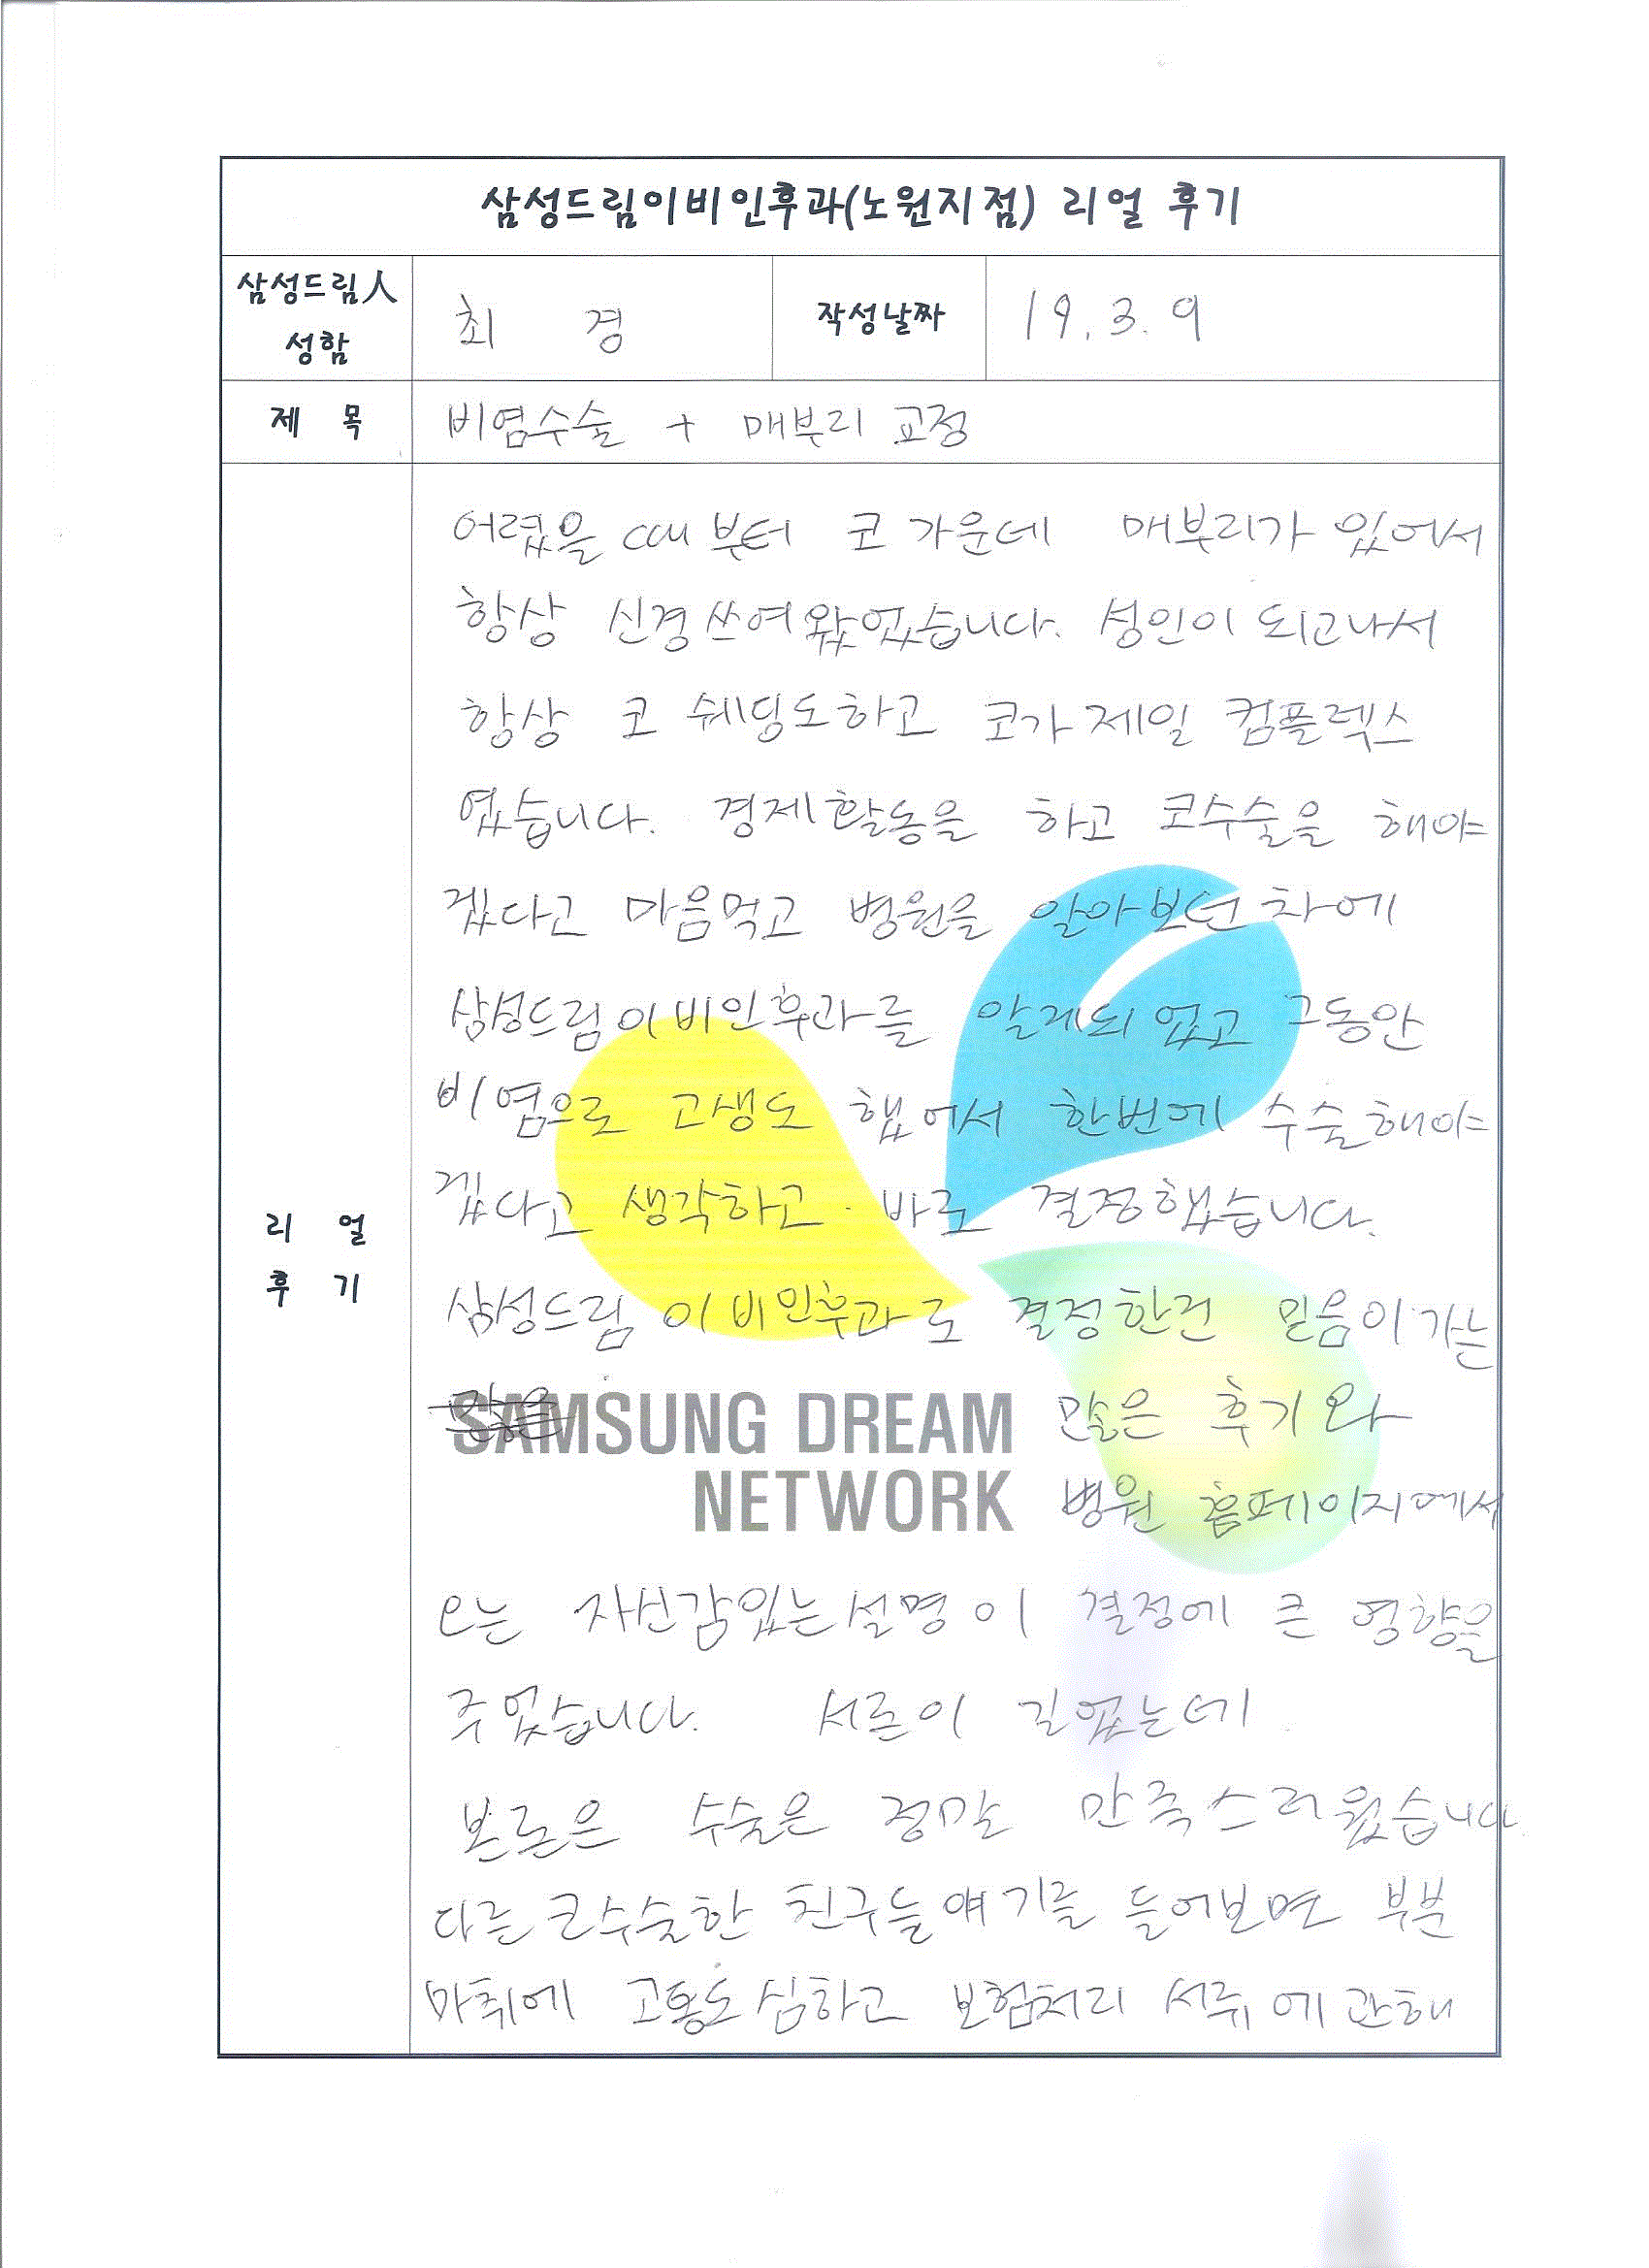 삼성드림이비인후과(노원지점) 리얼 후기
삼성드림人 성함
최 경
작성날짜
19. 3. 9
제 목
비염수술 + 매부리 교정
리 얼 후 기
어렸을 때부터 코 가운데 매부리가 있어서
항상 신경쓰여왔었습니다. 성인이 되고나서
항상 코 쉐딩도하고 코가 제일 컴플렉스
였습니다. 경제활동을 하고 코수술을 해야
겠다고 마음먹고 병원을 알아보던 차에
삼성드림이비인후과를 알게되었고 그동안
비염으로 고생도 했어서 한번에 수술해야
겠다고 생각하고 바로 결정했습니다.
삼성드림 이비인후과로 결정한건 믿음이가는
많은 후기와
SAMSUNG DREAM
NETWORK
병원 홈페이지에서
오는 자신감있는설명이 결정에 큰 영향을
주었습니다. 서론이 길었는데
본론은 수술은 정말 만족스러웠습니다
다른 코수술한 친구들얘기를 들어보면 부분
마취에 고통도 심하고 보험처리 서류에 관해